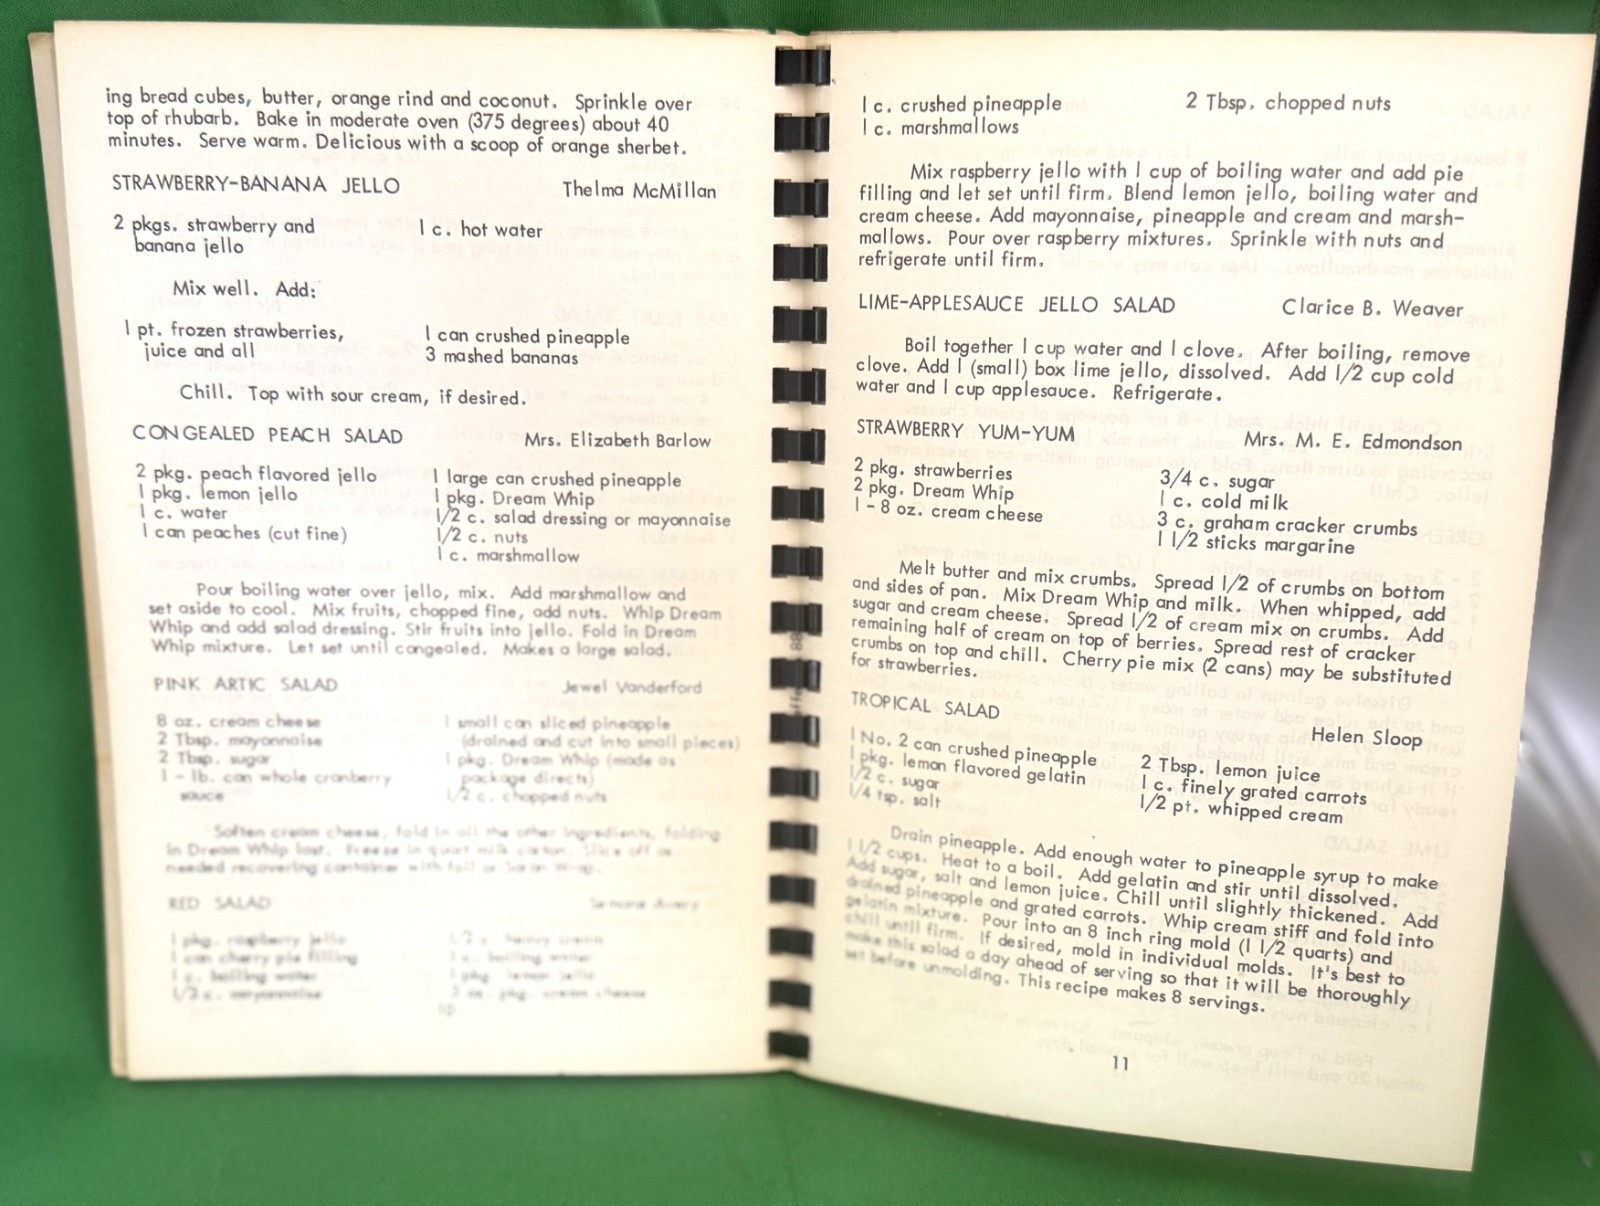 ing bread cubes, butter, orange rind and coconut. Sprinkle over
top of rhubarb. Bake in moderate oven (375 degrees) about 40
minutes. Serve warm. Delicious with a scoop of orange sherbet.
STRAWBERRY-BANANA JELLO Thelma McMillan
2 pkgs. strawberry and 1 c. hot water
banana jello
Mix well. Add:
1 pt. frozen strawberries, 1 can crushed pineapple
juice and all 3 mashed bananas
Chill. Top with sour cream, if desired.
CONGEALED PEACH SALAD Mrs. Elizabeth Barlow
2 pkg. peach flavored jello 1 large can crushed pineapple
1 pkg. lemon jello 1 pkg. Dream Whip
1 c. water 1/2 c. salad dressing or mayonnaise
1 can peaches (cut fine) 1/2 c. nuts
1 c. marshmallow
Pour boiling water over jello, mix. Add marshmallow and
set aside to cool. Mix fruits, chopped fine, add nuts. Whip Dream
Whip and add salad dressing. Stir fruits into jello. Fold in Dream
Whip mixture. Let set until congealed. Makes a large salad.
PINK ARTIC SALAD Jewel Vanderford
8 oz. cream cheese 1 small can sliced pineapple
2 Tbsp. mayonnaise (drained and cut into small pieces)
2 Tbsp. sugar 1 pkg. Dream Whip (made as
1 - lb. can whole cranberry package directs)
sauce 1/2 c. chopped nuts
Soften cream cheese, fold in all the other ingredients, folding
in Dream Whip last. Freeze in quart milk carton. Slice off as
needed recovering container with foil or Saran Wrap.
RED SALAD Avery
1 pkg. raspberry jello 1/2 c. heavy cream
1 can cherry pie filling 1 c. boiling water
1 c. boiling water 1 pkg. lemon jello
1/3 c. mayonnaise 3 oz. pkg. cream cheese
10
1 c. crushed pineapple 2 Tbsp. chopped nuts
1 c. marshmallows
Mix raspberry jello with 1 cup of boiling water and add pie
filling and let set until firm. Blend lemon jello, boiling water and
cream cheese. Add mayonnaise, pineapple and cream and marsh-
mallows. Pour over raspberry mixtures. Sprinkle with nuts and
refrigerate until firm.
LIME-APPLESAUCE JELLO SALAD Clarice B. Weaver
Boil together 1 cup water and 1 clove. After boiling, remove
clove. Add 1 (small) box lime jello, dissolved. Add 1/2 cup cold
water and 1 cup applesauce. Refrigerate.
STRAWBERRY YUM-YUM Mrs. M. E. Edmondson
2 pkg. strawberries 3/4 c. sugar
2 pkg. Dream Whip 1 c. cold milk
1 - 8 oz. cream cheese 3 c. graham cracker crumbs
1 1/2 sticks margarine
Melt butter and mix crumbs. Spread 1/2 of crumbs on bottom
and sides of pan. Mix Dream Whip and milk. When whipped, add
sugar and cream cheese. Spread 1/2 of cream mix on crumbs. Add
remaining half of cream on top of berries. Spread rest of cracker
crumbs on top and chill. Cherry pie mix (2 cans) may be substituted
for strawberries.
TROPICAL SALAD Helen Sloop
1 No. 2 can crushed pineapple 2 Tbsp. lemon juice
1 pkg. lemon flavored gelatin 1 c. finely grated carrots
1/2 c. sugar 1/2 pt. whipped cream
1/4 tsp. salt
Drain pineapple. Add enough water to pineapple syrup to make
1 1/2 cups. Heat to a boil. Add gelatin and stir until dissolved.
Add sugar, salt and lemon juice. Chill until slightly thickened. Add
drained pineapple and grated carrots. Whip cream stiff and fold into
gelatin mixture. Pour into an 8 inch ring mold (1 1/2 quarts) and
chill until firm. If desired, mold in individual molds. It's best to
make this salad a day ahead of serving so that it will be thoroughly
set before unmolding. This recipe makes 8 servings.
11